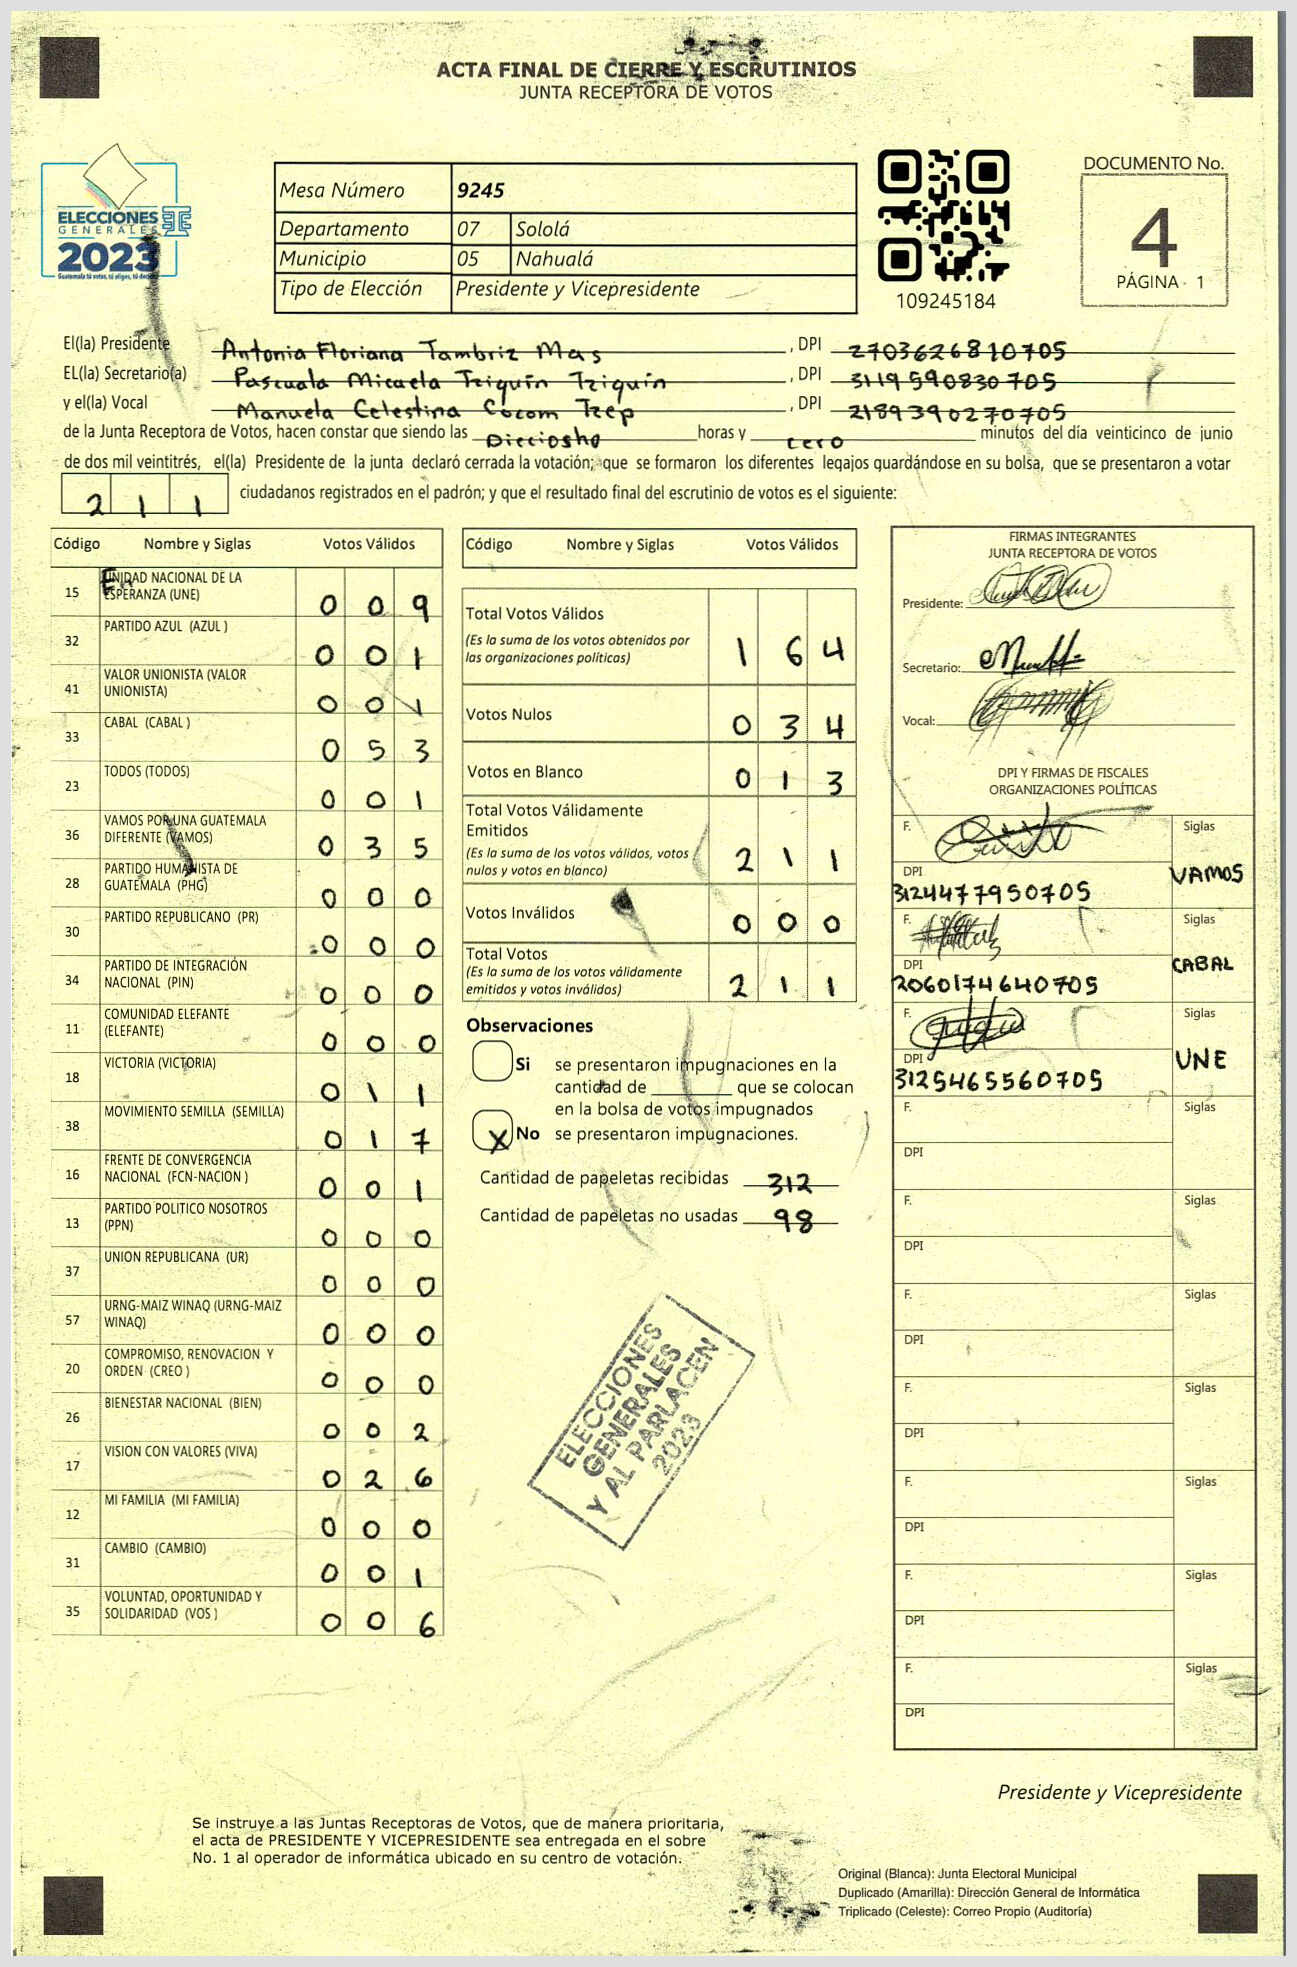 ACTA FINAL DE CIERRE Y ESCRUTINIOS
JUNTA RECEPTORA DE VOTOS
ELECCIONES
GENERALES
2023
Guatemala tú votas, tú eliges, tú decides
Mesa Número 9245
Departamento 07 Sololá
Municipio 05 Nahualá
Tipo de Elección Presidente y Vicepresidente
109245184
DOCUMENTO No.
4
PÁGINA - 1
El(la) Presidente Antonia Floriana Tambriz Mas , DPI 2703626810705
EL(la) Secretario(a) Pascuala Micaela Tziquín Tziquín , DPI 3119590830705
y el(la) Vocal Manuela Celestina Cocom Tzep , DPI 2189390270705
de la Junta Receptora de Votos, hacen constar que siendo las Dieciosho horas y cero minutos del día veinticinco de junio
de dos mil veintitrés, el(la) Presidente de la junta declaró cerrada la votación; que se formaron los diferentes legajos guardándose en su bolsa, que se presentaron a votar
211 ciudadanos registrados en el padrón; y que el resultado final del escrutinio de votos es el siguiente:
Código Nombre y Siglas Votos Válidos
15 UNIDAD NACIONAL DE LA ESPERANZA (UNE) 0 0 9
32 PARTIDO AZUL (AZUL ) 0 0 1
41 VALOR UNIONISTA (VALOR UNIONISTA) 0 0 1
33 CABAL (CABAL ) 0 5 3
23 TODOS (TODOS) 0 0 1
36 VAMOS POR UNA GUATEMALA DIFERENTE (VAMOS) 0 3 5
28 PARTIDO HUMANISTA DE GUATEMALA (PHG) 0 0 0
30 PARTIDO REPUBLICANO (PR) 0 0 0
34 PARTIDO DE INTEGRACIÓN NACIONAL (PIN) 0 0 0
11 COMUNIDAD ELEFANTE (ELEFANTE) 0 0 0
18 VICTORIA (VICTORIA) 0 1 1
38 MOVIMIENTO SEMILLA (SEMILLA) 0 1 7
16 FRENTE DE CONVERGENCIA NACIONAL (FCN-NACION ) 0 0 1
13 PARTIDO POLITICO NOSOTROS (PPN) 0 0 0
37 UNION REPUBLICANA (UR) 0 0 0
57 URNG-MAIZ WINAQ (URNG-MAIZ WINAQ) 0 0 0
20 COMPROMISO, RENOVACION Y ORDEN (CREO ) 0 0 0
26 BIENESTAR NACIONAL (BIEN) 0 0 2
17 VISION CON VALORES (VIVA) 0 2 6
12 MI FAMILIA (MI FAMILIA) 0 0 0
31 CAMBIO (CAMBIO) 0 0 1
35 VOLUNTAD, OPORTUNIDAD Y SOLIDARIDAD (VOS ) 0 0 6
Código Nombre y Siglas Votos Válidos
Total Votos Válidos 1 6 4
(Es la suma de los votos obtenidos por
las organizaciones políticas)
Votos Nulos 0 3 4
Votos en Blanco 0 1 3
Total Votos Válidamente
Emitidos
(Es la suma de los votos válidos, votos
nulos y votos en blanco) 2 1 1
Votos Inválidos 0 0 0
Total Votos
(Es la suma de los votos válidamente
emitidos y votos inválidos) 2 1 1
Observaciones
Si se presentaron impugnaciones en la
cantidad de que se colocan
en la bolsa de votos impugnados
X No se presentaron impugnaciones.
Cantidad de papeletas recibidas 312
Cantidad de papeletas no usadas 98
ELECCIONES
GENERALES
Y AL PARLACEN
2023
FIRMAS INTEGRANTES
JUNTA RECEPTORA DE VOTOS
Presidente:
Secretario:
Vocal:
DPI Y FIRMAS DE FISCALES
ORGANIZACIONES POLÍTICAS
F. Siglas
DPI VAMOS
3124477950705
F. Siglas
DPI CABAL
2060174640705
F. Siglas
DPI UNE
3125465560705
F. Siglas
DPI
F. Siglas
DPI
F. Siglas
DPI
F. Siglas
DPI
F. Siglas
DPI
F. Siglas
DPI
F. Siglas
DPI
Presidente y Vicepresidente
Se instruye a las Juntas Receptoras de Votos, que de manera prioritaria,
el acta de PRESIDENTE Y VICEPRESIDENTE sea entregada en el sobre
No. 1 al operador de informática ubicado en su centro de votación.
Original (Blanca): Junta Electoral Municipal
Duplicado (Amarilla): Dirección General de Informática
Triplicado (Celeste): Correo Propio (Auditoría)